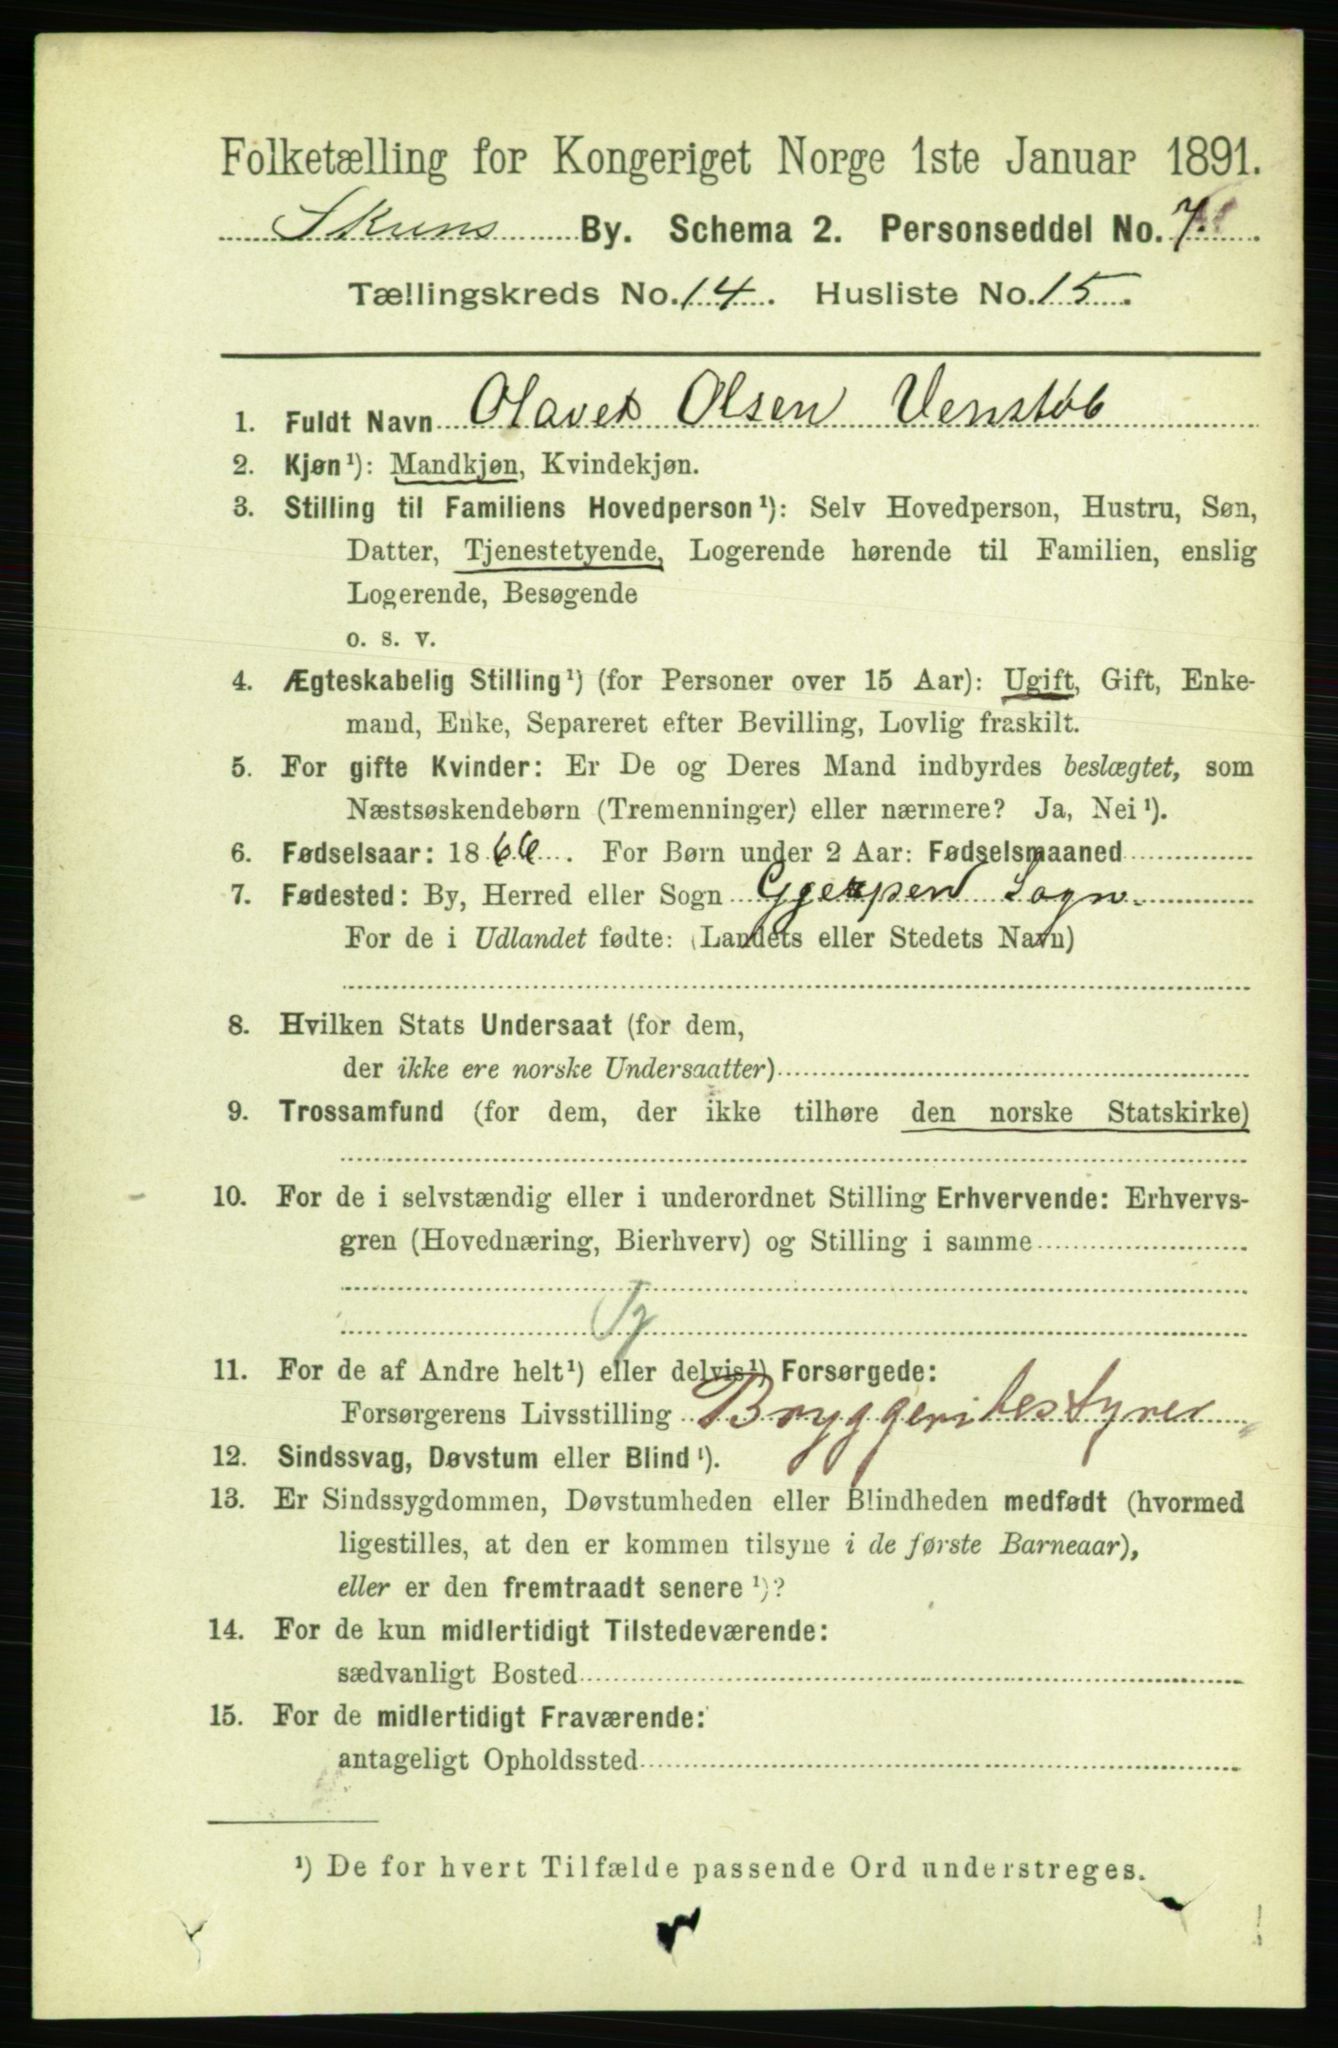 Folketælling for Kongeriget Norge 1ste Januar 1891.
Skiens By. Schema 2. Personseddel No. 7
Tællingskreds No. 14. Husliste No. 15.
1. Fuldt Navn Olaves Olsen Venstøb
2. Kjøn¹): Mandkjøn, Kvindekjøn.
3. Stilling til Familiens Hovedperson¹): Selv Hovedperson, Hustru, Søn,
Datter, Tjenestetyende, Logerende hørende til Familien, enslig
Logerende, Besøgende
o. s. v.
4. Ægteskabelig Stilling¹) (for Personer over 15 Aar): Ugift, Gift, Enke-
mand, Enke, Separeret efter Bevilling, Lovlig fraskilt.
5. For gifte Kvinder: Er De og Deres Mand indbyrdes beslægtet, som
Næstsøskendebørn (Tremenninger) eller nærmere? Ja, Nei¹).
6. Fødselsaar: 1866. For Børn under 2 Aar: Fødselsmaaned
7. Fødested: By, Herred eller Sogn Gjerpen Sogn.
For de i Udlandet fødte: (Landets eller Stedets Navn)
8. Hvilken Stats Undersaat (for dem,
der ikke ere norske Undersaatter)
9. Trossamfund (for dem, der ikke tilhøre den norske Statskirke)
10. For de i selvstændig eller i underordnet Stilling Erhvervende: Erhvervs-
gren (Hovednæring, Bierhverv) og Stilling i samme
Tj
11. For de af Andre helt¹) eller delvis¹) Forsørgede:
Forsørgerens Livsstilling Bryggeribestyrer
12. Sindssvag, Døvstum eller Blind¹).
13. Er Sindssygdommen, Døvstumheden eller Blindheden medfødt (hvormed
ligestilles, at den er kommen tilsyne i de første Barneaar),
eller er den fremtraadt senere¹)?
14. For de kun midlertidigt Tilstedeværende:
sædvanligt Bosted
15. For de midlertidigt Fraværende:
antageligt Opholdssted
¹) De for hvert Tilfælde passende Ord understreges.